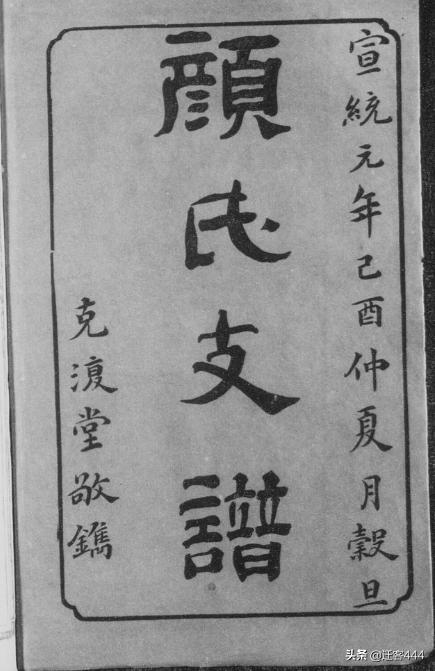 宣統元年己酉仲夏月穀旦
顏氏支譜
克復堂敬鐫
头条 @迁客444